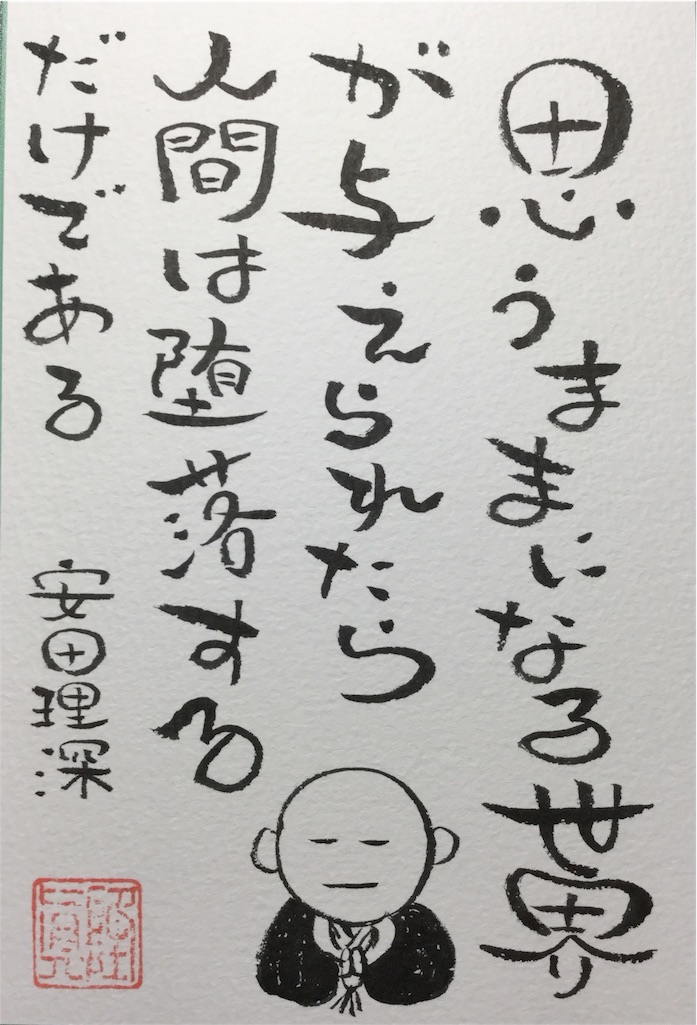 思うままになる世界
が与えられたら
人間は堕落する
だけである
安田理深